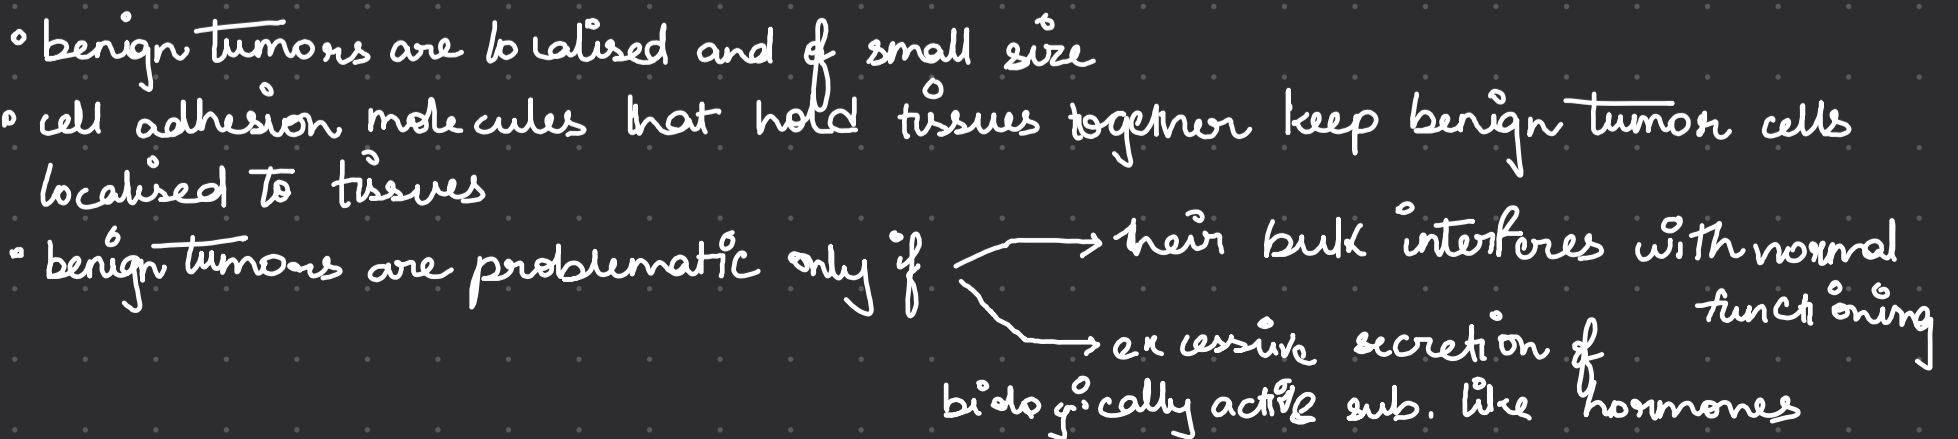 • benign tumors are localised and of small size
• cell adhesion molecules that hold tissues together keep benign tumor cells
localised to tissues
• benign tumors are problematic only if → their bulk interferes with normal
functioning
→ excessive secretion of
biologically active sub. like hormones